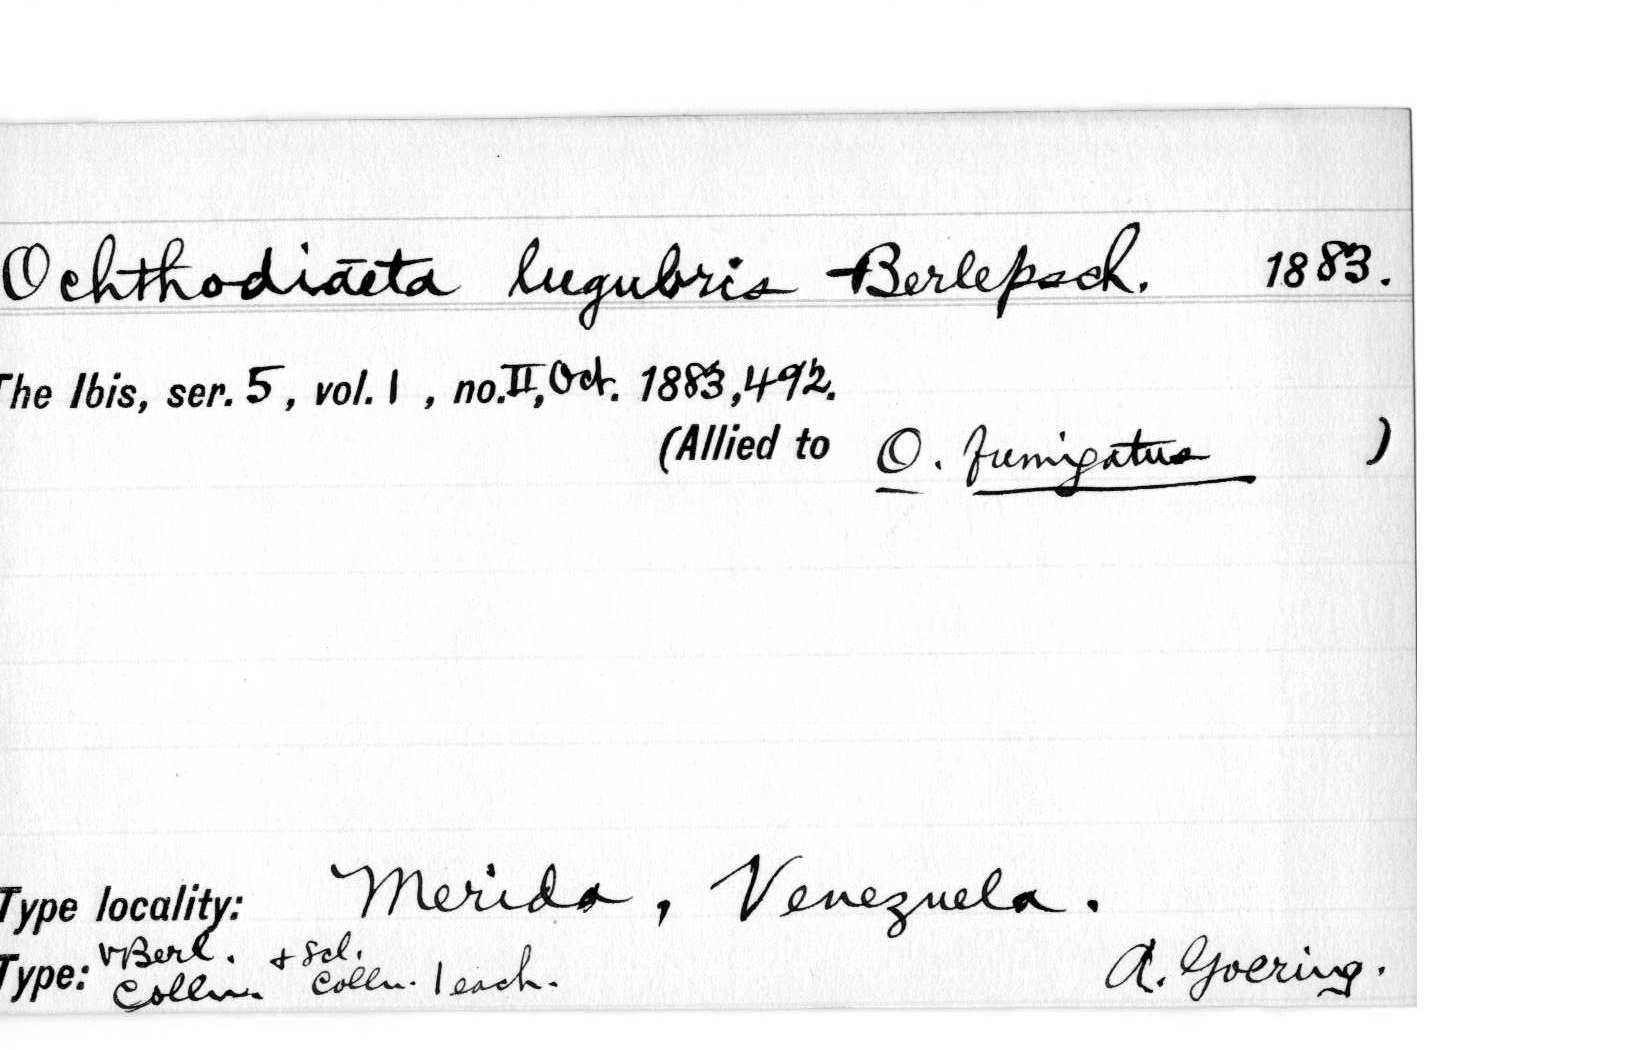 Ochthodiaeta lugubris Berlepsch. 1883.
The Ibis, ser. 5, vol. 1, no. II, Oct. 1883, 492.
(Allied to O. fumigatus )
Type locality: Merida, Venezuela.
Type: vBerl. Colln. + Scl. Colln. 1 each. A. Goering.